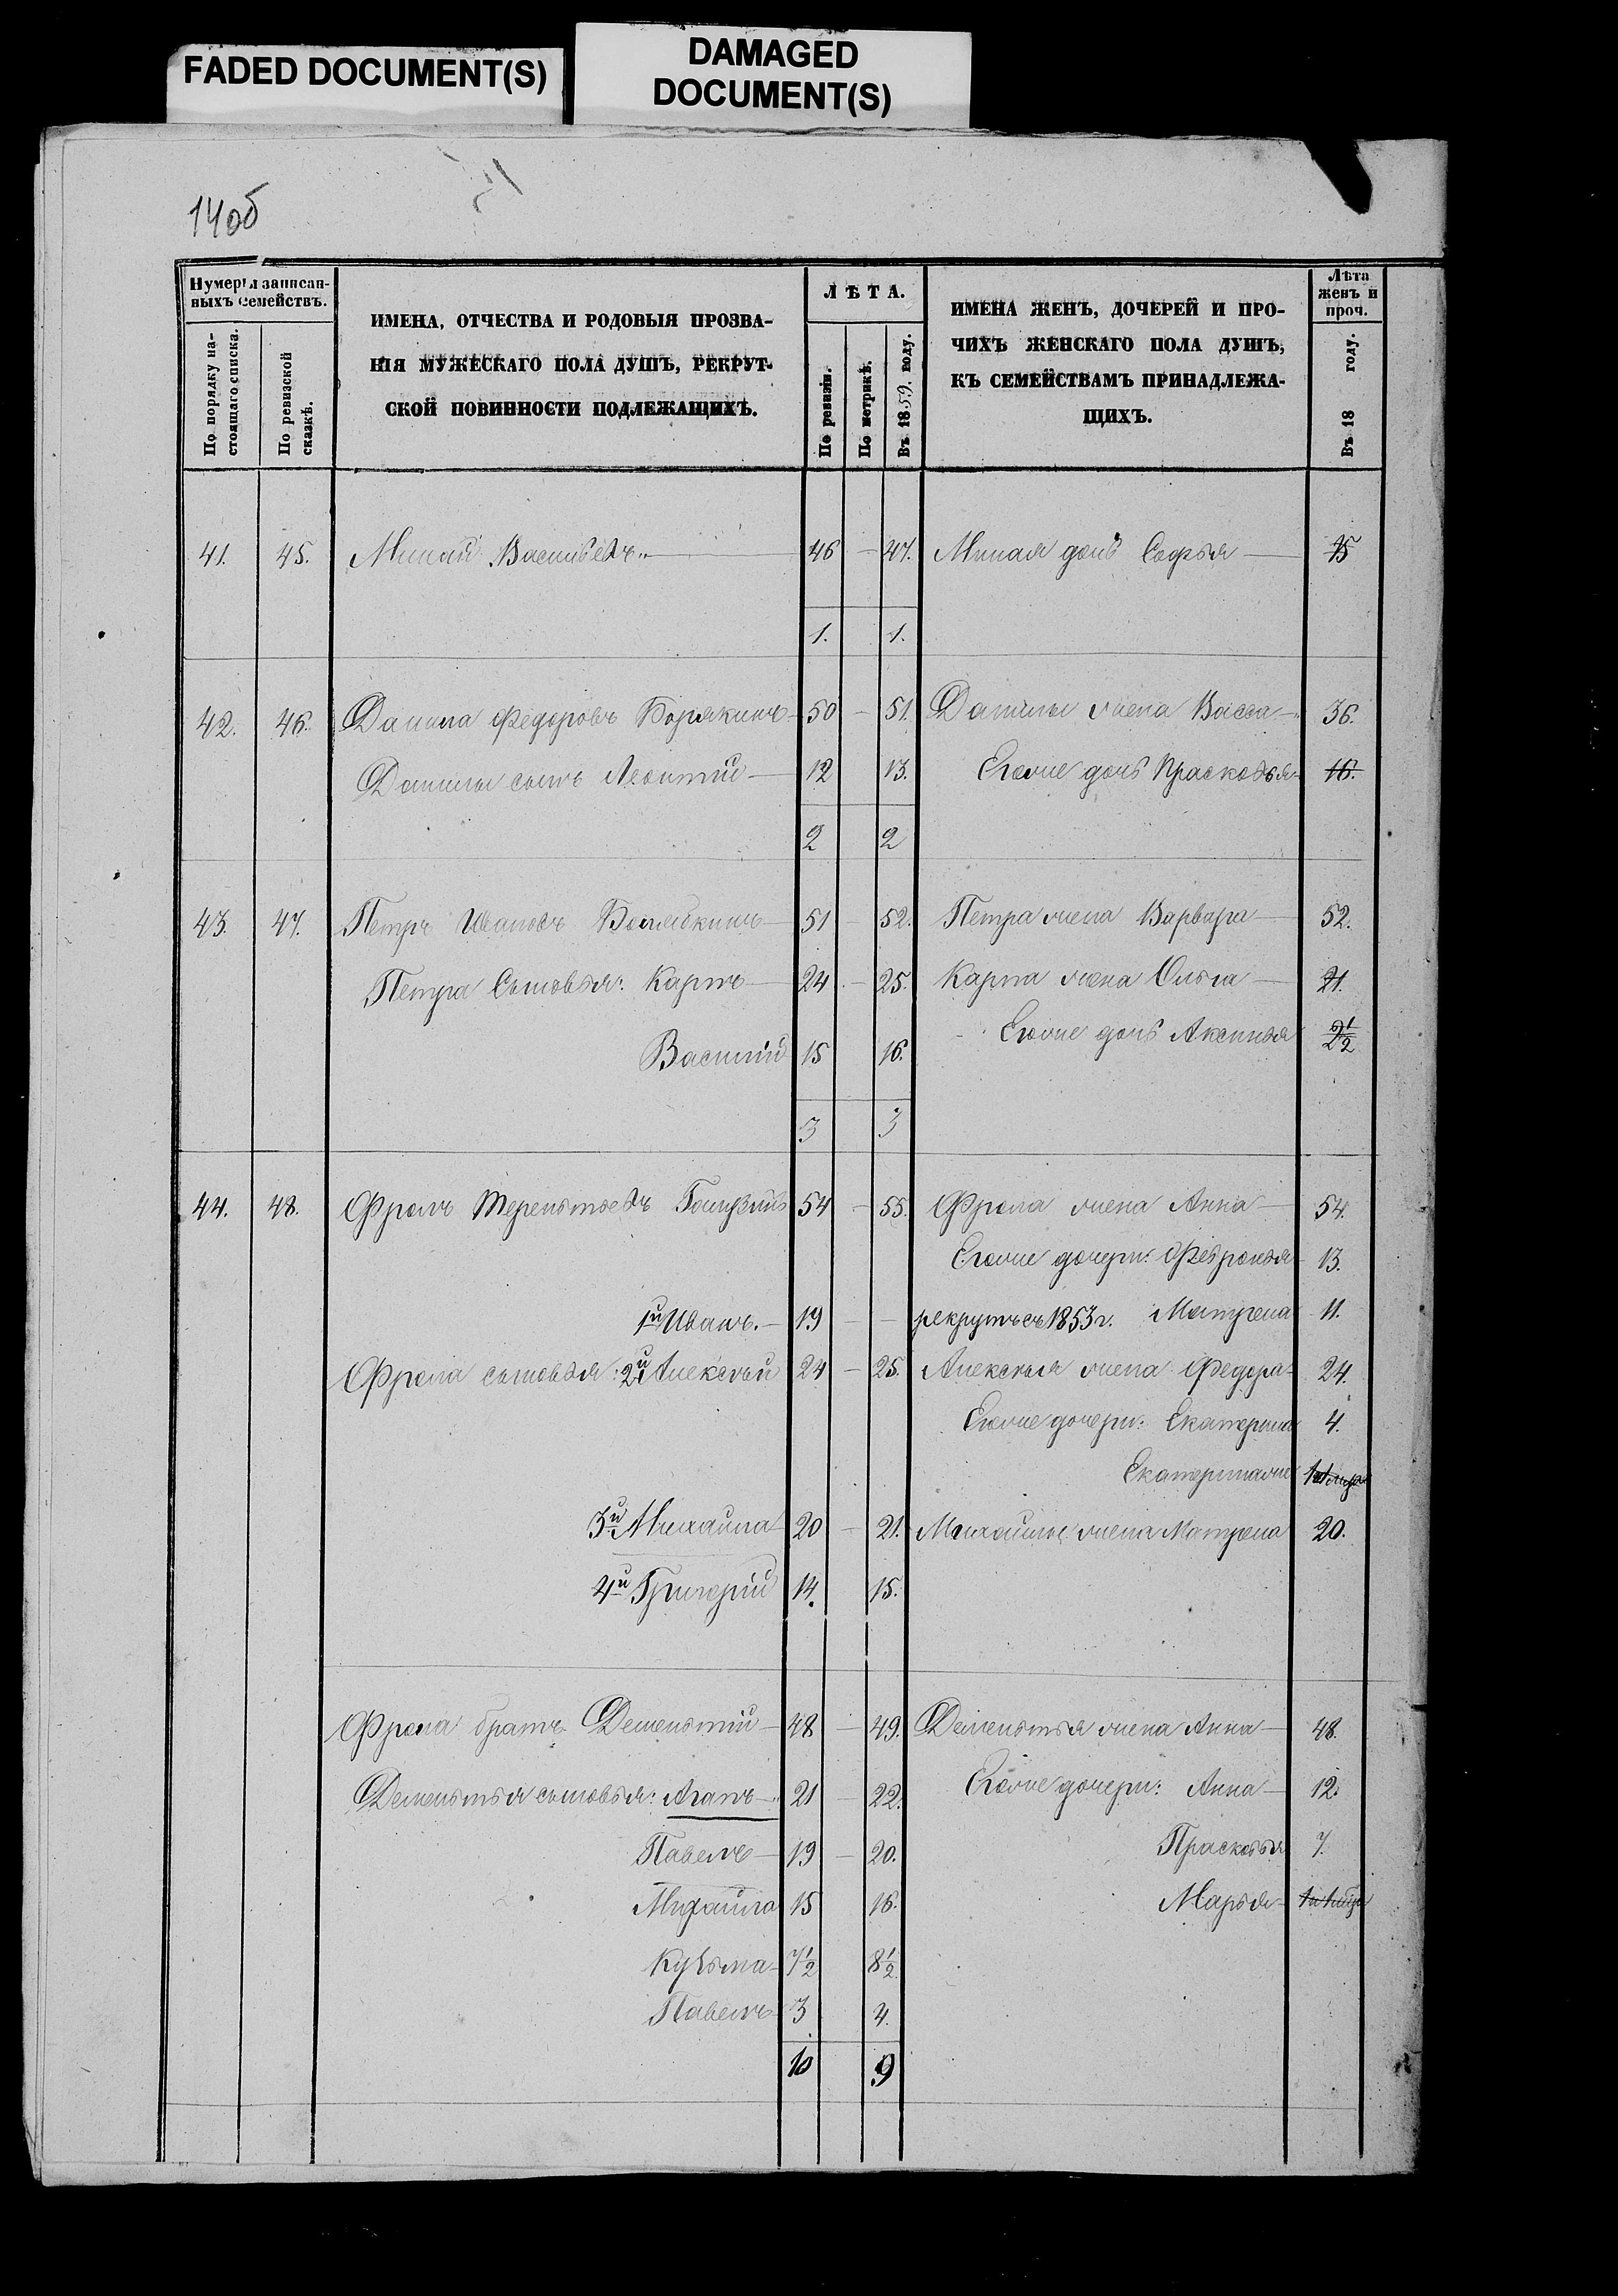 FADED DOCUMENT(S)
DAMAGED
DOCUMENT(S)
14об
Нумера записан-
ныхъ семействъ.
По порядку на-
стоящаго списка.
По ревизской
сказкѣ.
ИМЕНА, ОТЧЕСТВА И РОДОВЫЯ ПРОЗВА-
НІЯ МУЖЕСКАГО ПОЛА ДУШЪ, РЕКРУТ-
СКОЙ ПОВИННОСТИ ПОДЛЕЖАЩИХЪ.
ЛѢТА.
По ревизіи.
По метрикѣ.
Въ 1859. году.
ИМЕНА ЖЕНЪ, ДОЧЕРЕЙ И ПРО-
ЧИХЪ ЖЕНСКАГО ПОЛА ДУШЪ,
КЪ СЕМЕЙСТВАМЪ ПРИНАДЛЕЖА-
ЩИХЪ.
Лѣта
женъ и
проч.
Въ 18 году.
41. 45. Минай Васильевъ 46 — 47. Миная дочь Софья 15
1. 1.
42. 46. Данила Федоровъ 50 — 51. Данилы жена Васса 36.
Данилы сынъ Леонтий 12 13. Егоже дочь Прасковья 16.
2 2
43. 47. Петръ Ивановъ 51 — 52. Петра жена Варвара 52.
Петра сыновья: Карпъ 24 — 25. Карпа жена Ольга 21.
Василий 15 16. Егоже дочь Аксинья 2½
3 3
44. 48. Фролъ Терентьевъ 54 — 55. Фрола жена Анна 54.
Егоже дочери: Февронья 13.
1й Иванъ. 19 — — рекрутъ съ 1853 г. Матрена 11.
Фрола сыновья: 2й Алексѣй 24 — 25. Алексѣя жена Федора 24.
Егоже дочери: Екатерина 4.
Екатерина же
3й Михаила 20 — 21. Михайлы жена Матрена 20.
4й Григорий 14. 15.
Фрола братъ Дементий 48 — 49. Дементья жена Анна 48.
Дементья сыновья: Агапъ 21 — 22. Егоже дочери: Анна 12.
Павелъ 19 — 20. Прасковья 7.
Михайла 15 16. Марья
Кузьма 7½ 8½
Павелъ 3 4.
10 9